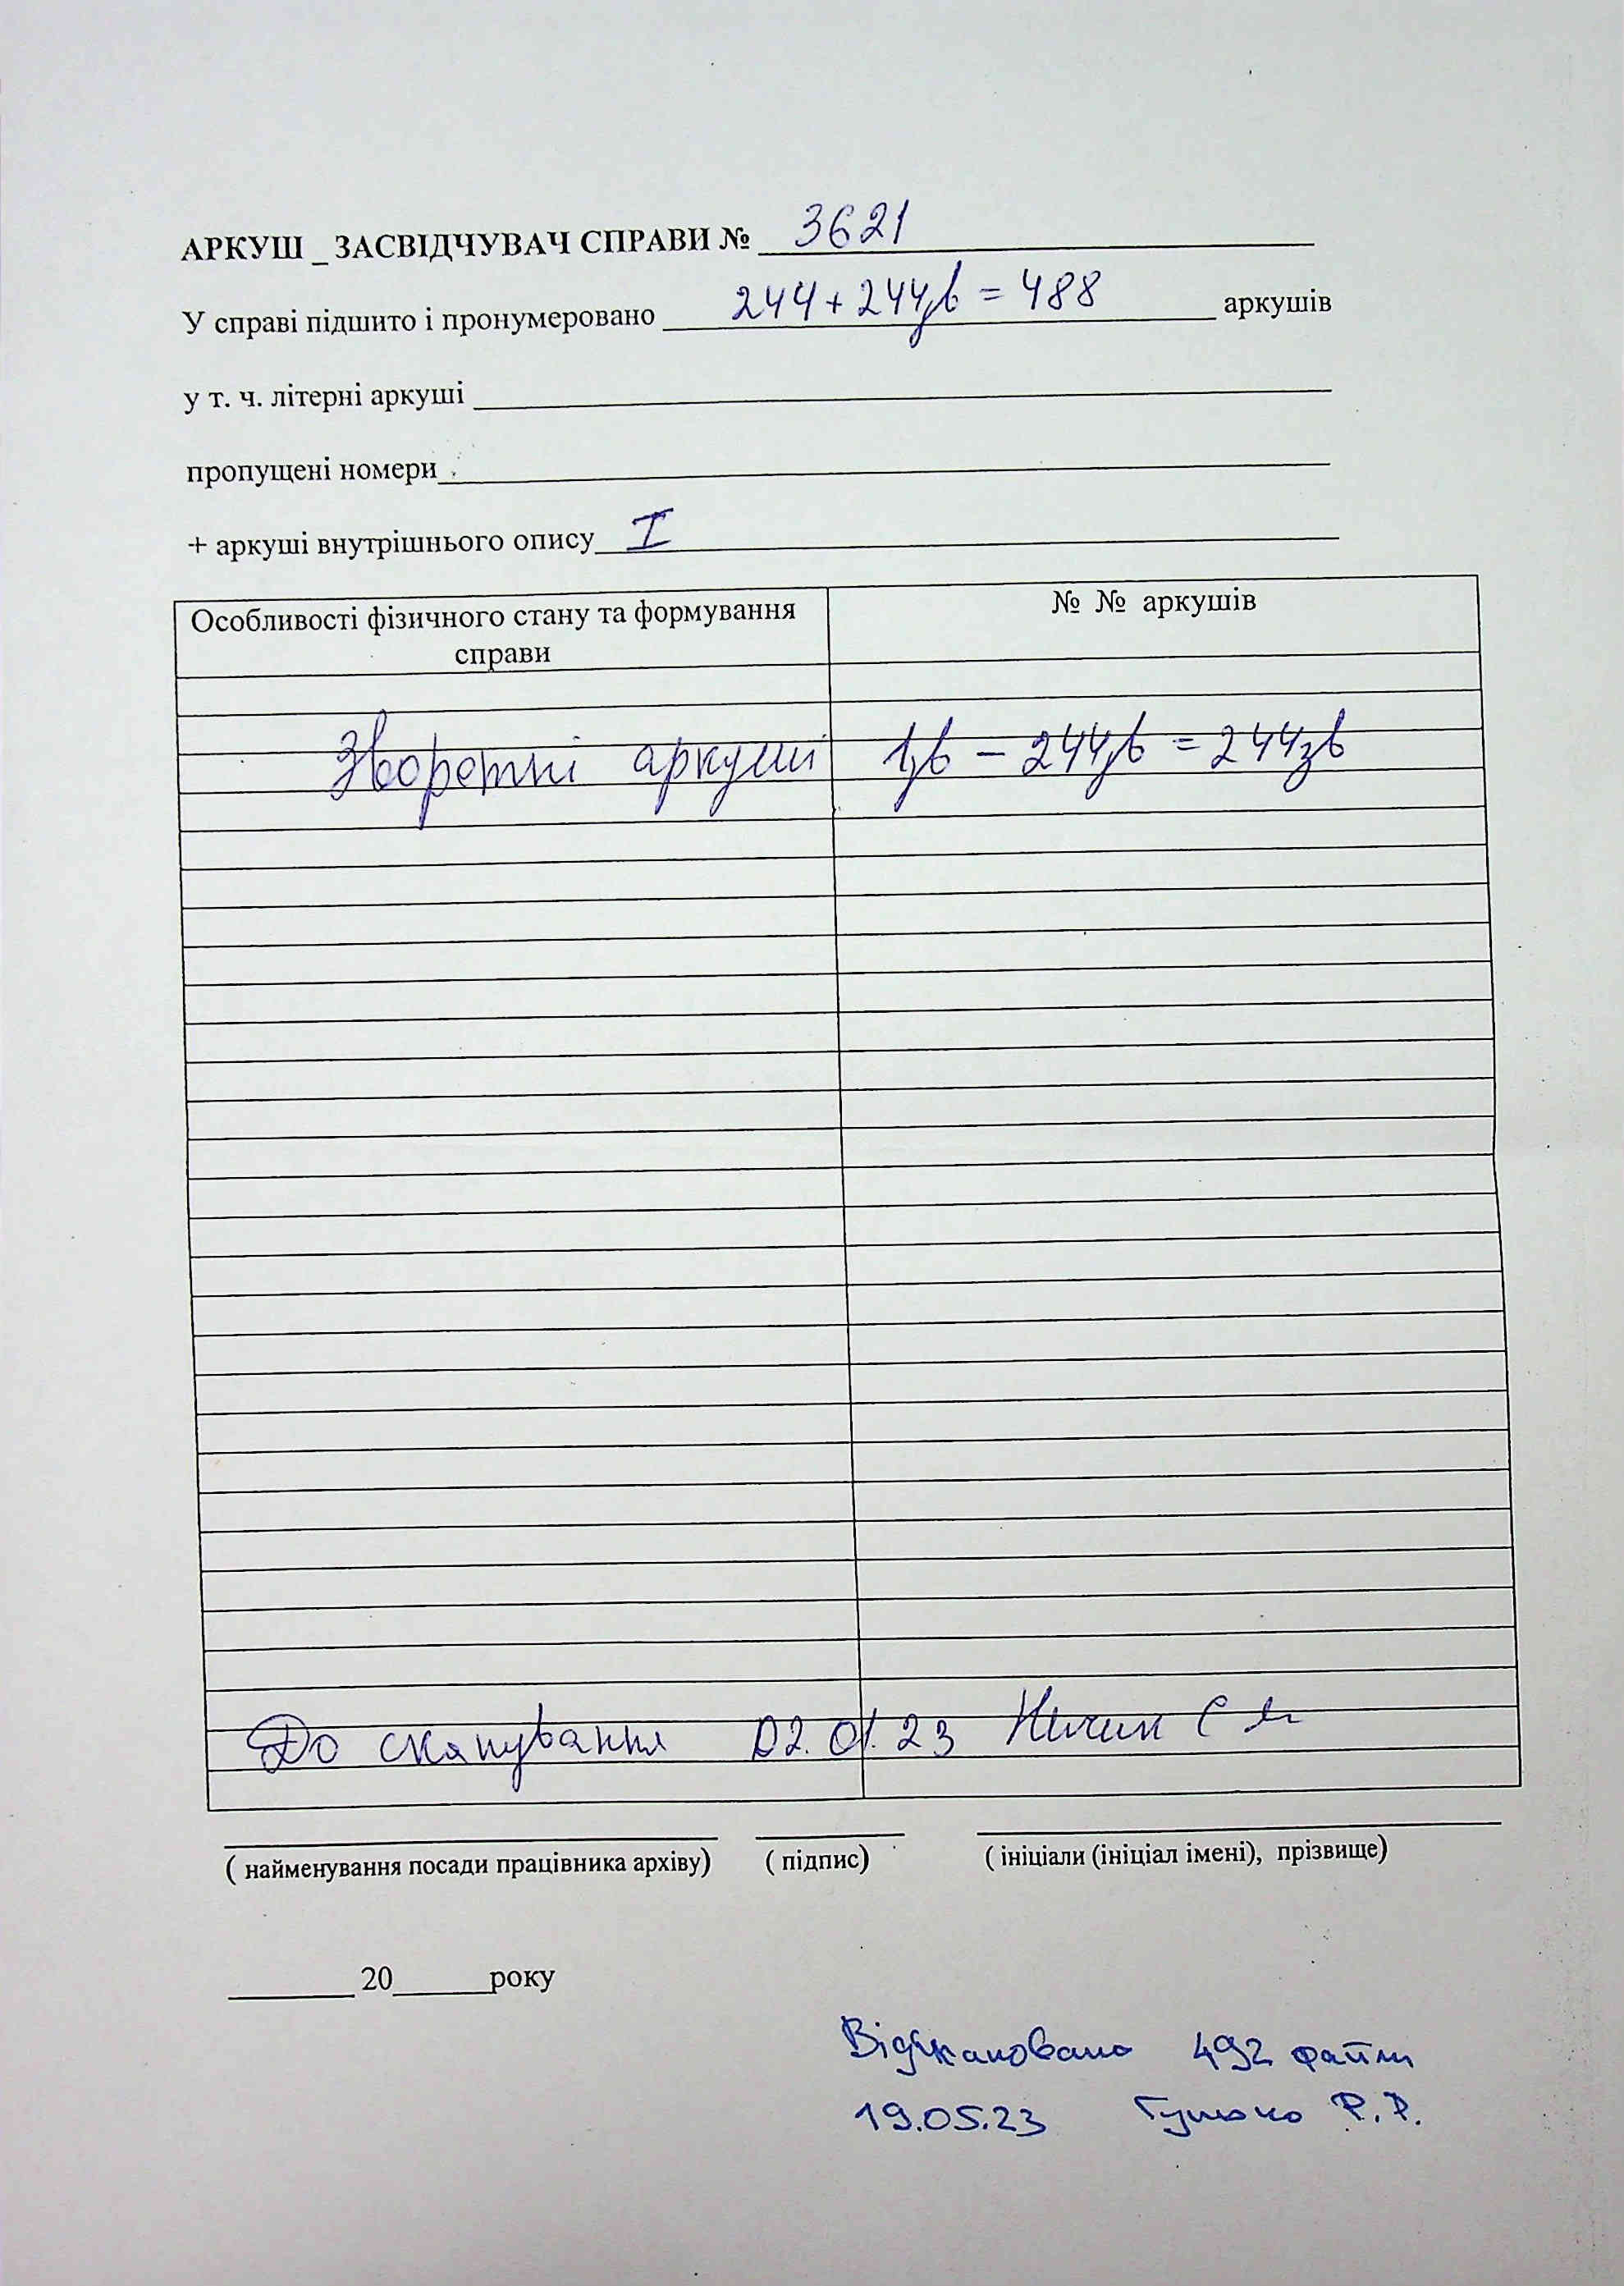 АРКУШ _ ЗАСВІДЧУВАЧ СПРАВИ № 3621
У справі підшито і пронумеровано 244 + 244зв = 488 аркушів
у т. ч. літерні аркуші
пропущені номери
+ аркуші внутрішнього опису I
Особливості фізичного стану та формування справи
№ № аркушів
Зворотні аркуші 1зв – 244зв = 244зв
До сканування 02.01.23
( найменування посади працівника архіву) ( підпис) ( ініціали (ініціал імені), прізвище)
20 року
Відскановано 492 файли
19.05.23 Р.Р.